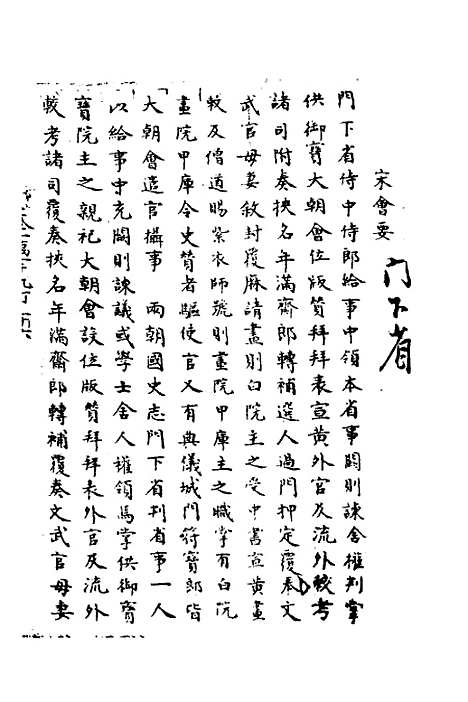 宋會要
門下省
門下省侍中侍郎給事中領本省事闕則諫舍權判掌
供御寶大朝會位版贊拜拜表宣黃外官及流外較考
諸司附奏挾名年滿齋郎轉補選人過門押定覆奏文
武官母妻敘封覆麻請畫則白院主之受中書宣黃畫
較及僧道賜紫衣師號則畫院甲庫主之職掌有白院
畫院甲庫令史贊者驅使官又有典儀城門符寶郎皆
大朝會遣官攝事 兩朝國史志門下省判省事一人
以給事中充闕則諫議或學士舍人權領焉掌供御寶
寶院主之親祀大朝會設位版贊拜拜表外官及流外
較考諸司覆奏挾名年滿齋郎轉補覆奏文武官母妻